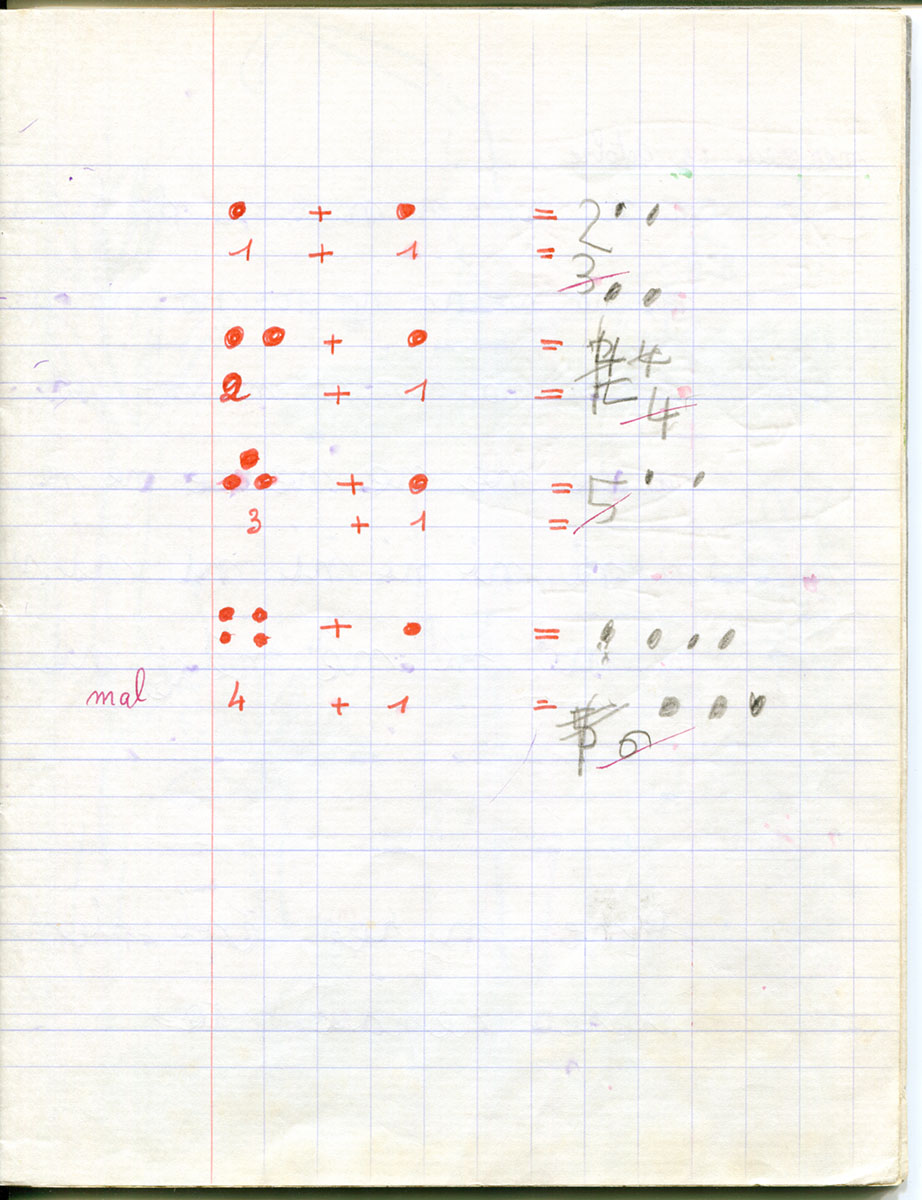 ● + ● = 2 ● ●
1 + 1 = 3 ● ●
●● + ● = 4 4
2 + 1 = 4
●●● + ● = 5 ● ●
3 + 1 =
●●●● + ● = ● ● ● ●
mal 4 + 1 = 6 ● ● ●